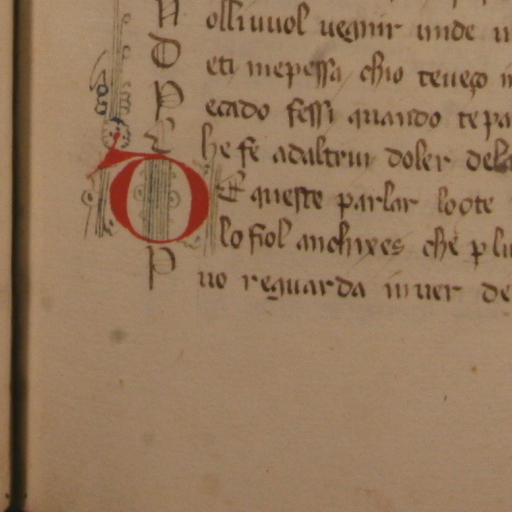 N olli vuol uegnir unde u
D eti inepessa chio teueço
P ecado fessi quando te pa
C he fe adaltrui doler dela
D E queste parlar lo ote
lo fiol anchixes che plu
P uo reguarda inuer de